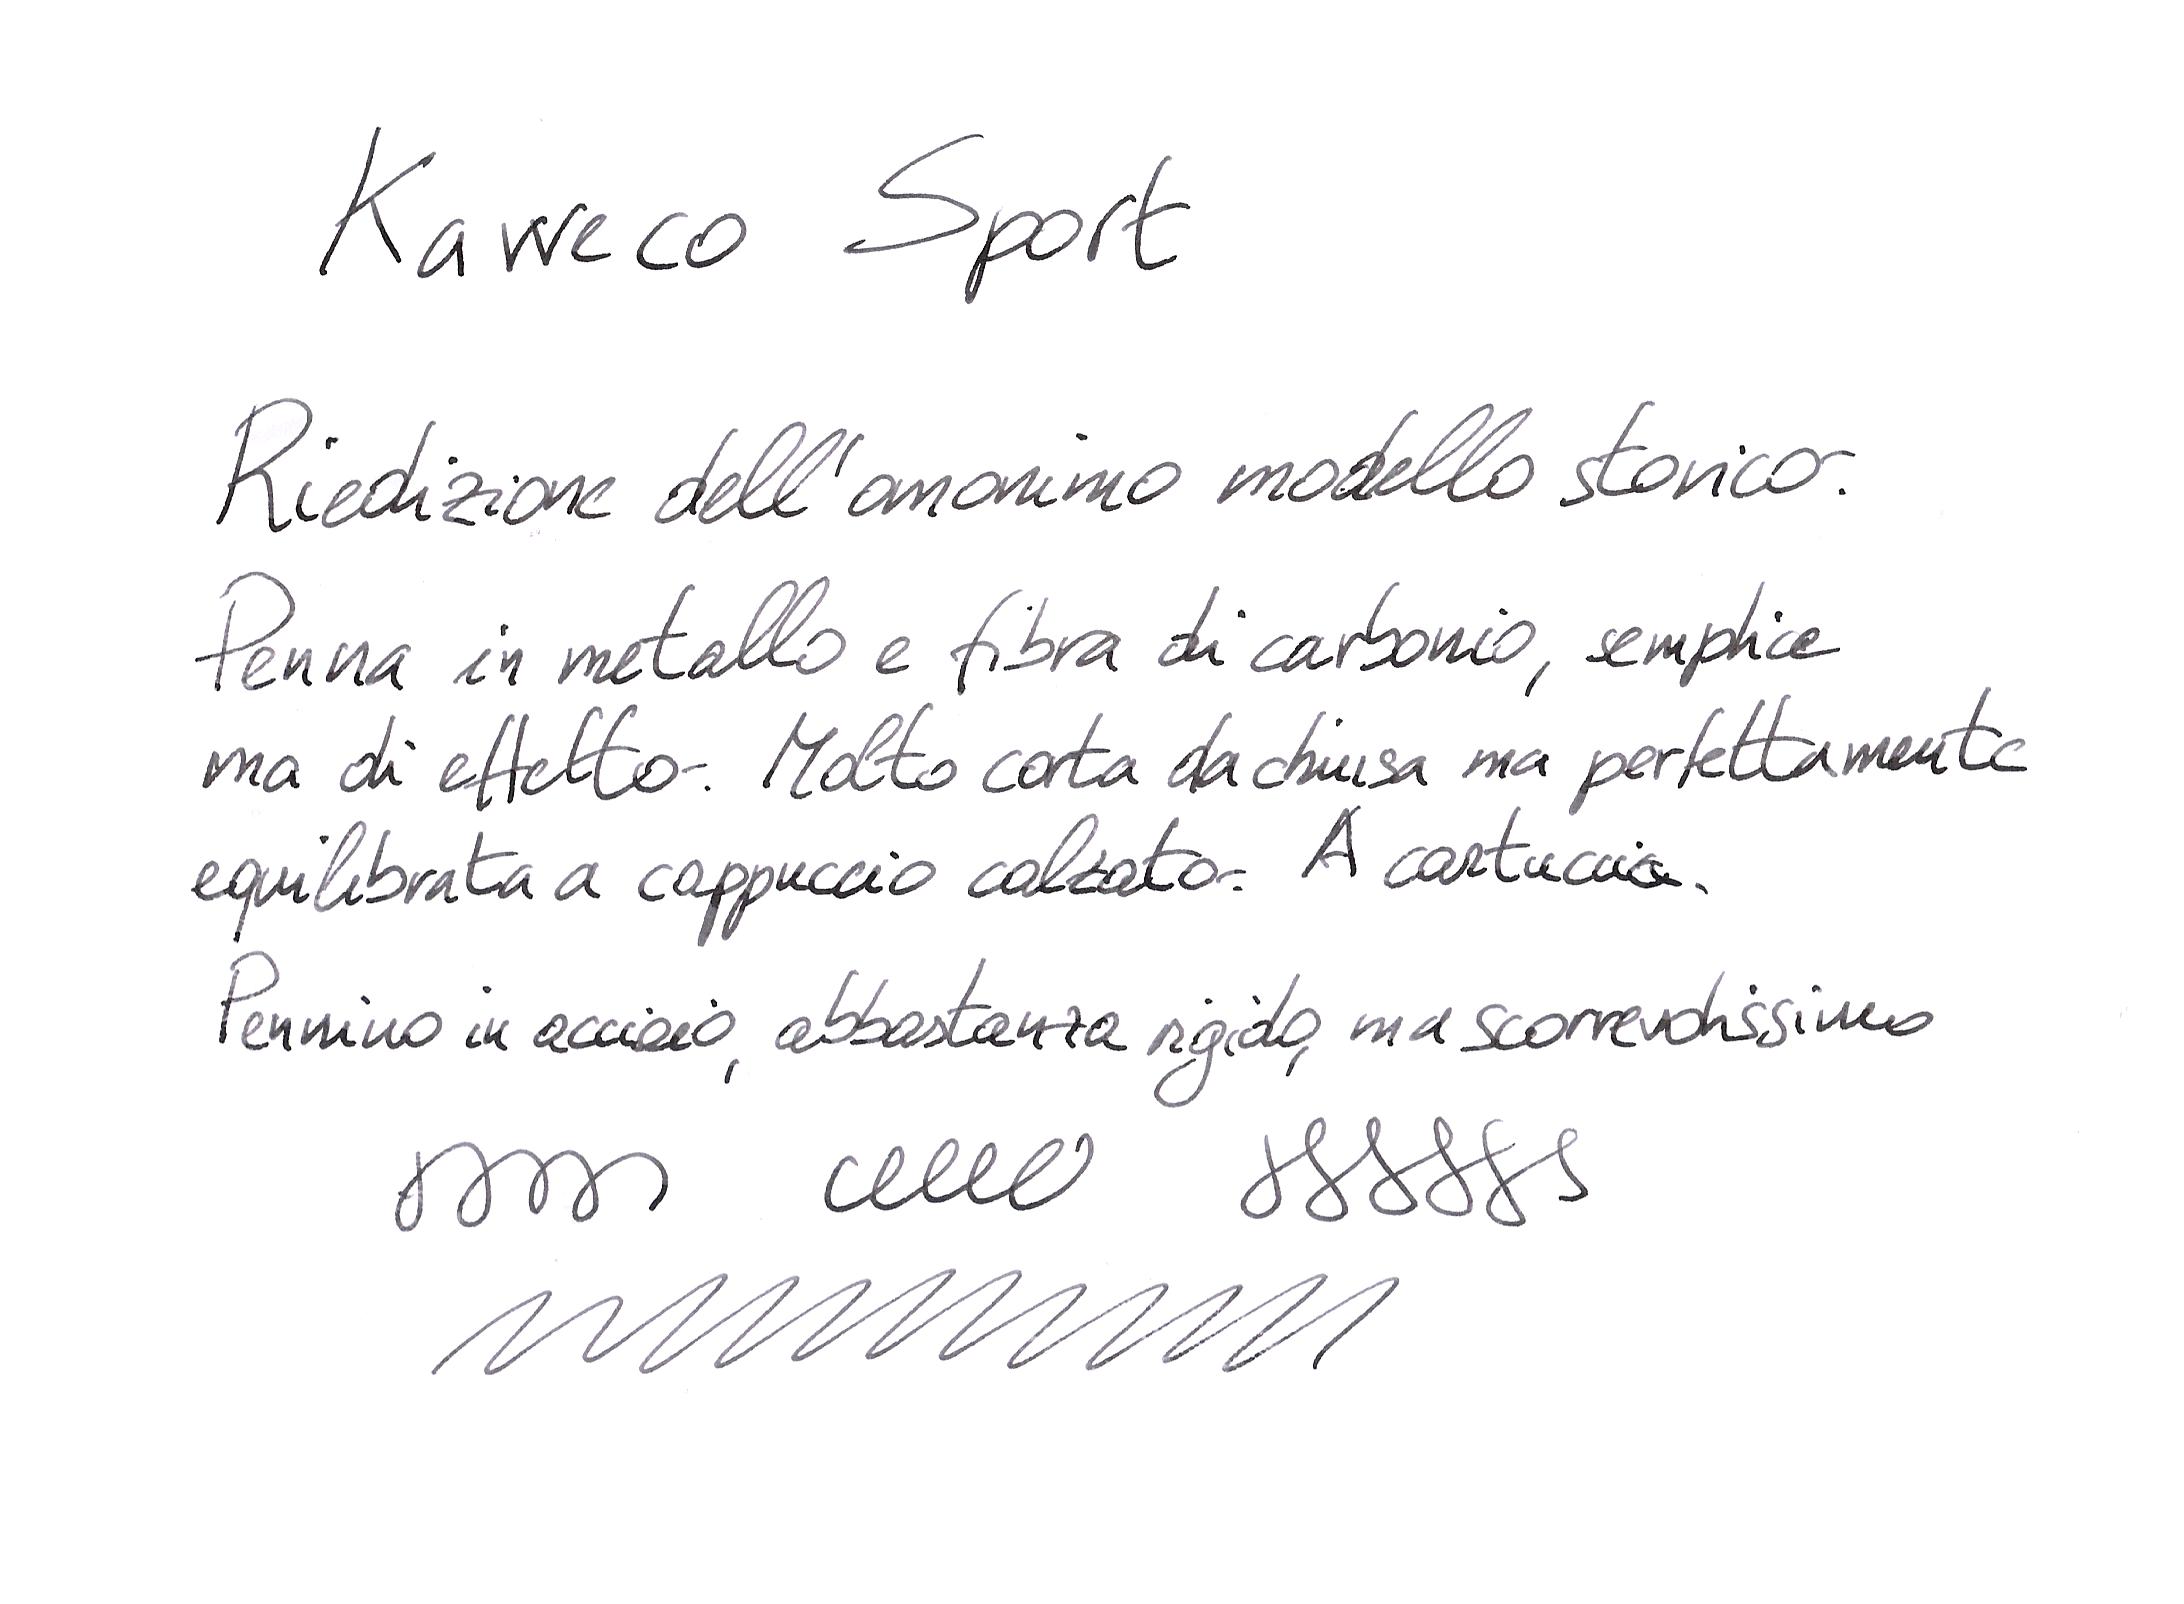 Kaweco Sport
Riedizione dell'omonimo modello storico.
Penna in metallo e fibra di carbonio, semplice
ma di effetto. Molto corta da chiusa ma perfettamente
equilibrata a cappuccio calzato. A cartuccia.
Pennino in acciaio, abbastanza rigido, ma scorrevolissimo